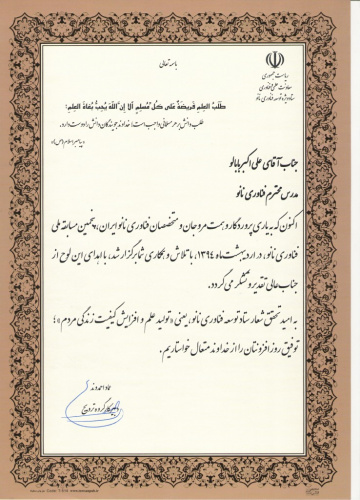 باسمه تعالی
ریاست جمهوری
معاونت علمی و فناوری
ستاد ویژه توسعه فناوری نانو
طَلَبُ العِلمِ فَریضَةٌ عَلی کُلِّ مُسلِمٍ اَلا اِنَّ اللّهَ یُحِبُّ بُغاةَ العِلمِ؛
طلب دانش بر هر مسلمانی واجب است؛ خداوند جویندگان دانش را دوست دارد.
پیامبر اسلام (ص)
جناب آقای علی اکبر بابالو
مدرس محترم فناوری نانو
اکنون که به یاری پروردگار و همت مروجان و متخصصان فناوری نانو ایران، پنجمین مسابقه ملی
فناوری نانو، در اردیبهشت ماه ۱۳۹۴، با تلاش و همکاری شما برگزار شد، با اهدای این لوح از
جناب عالی تقدیر و تشکر می گردد.
به امید تحقق شعار ستاد توسعه فناوری نانو، یعنی «تولید علم و افزایش کیفیت زندگی مردم»؛
توفیق روز افزونتان را از خداوند متعال خواستاریم.
عماد احمدوند
دبیر کارگروه ترویج